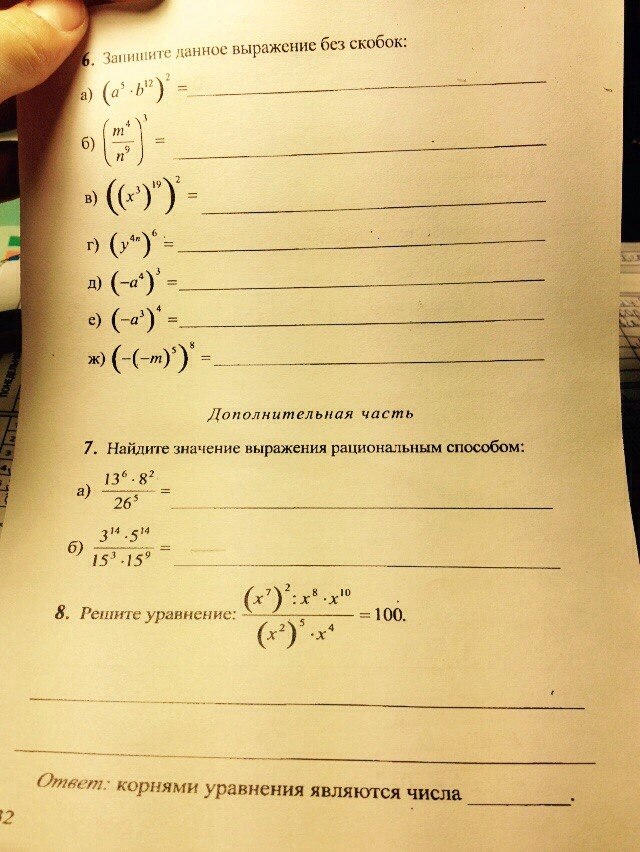 6. Запишите данное выражение без скобок:
а) (a⁵ · b¹²)² =
б) (m⁴/n⁹)³ =
в) ((x³)¹⁹)² =
г) (y⁴ⁿ)⁶ =
д) (−a⁴)³ =
е) (−a³)⁴ =
ж) (−(−m)⁵)⁸ =
Дополнительная часть
7. Найдите значение выражения рациональным способом:
а) 13⁶ · 8² / 26⁵ =
б) 3¹⁴ · 5¹⁴ / 15³ · 15⁹ =
8. Решите уравнение: (x⁷)² : x⁸ · x¹⁰ / (x²)⁵ · x⁴ = 100.
Ответ: корнями уравнения являются числа ________.